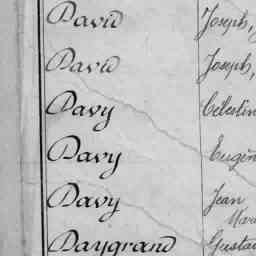 David Joseph,
David Joseph,
Davy Célestin
Davy Eugèn
Davy Jean
Mari
Daygrand Gusta